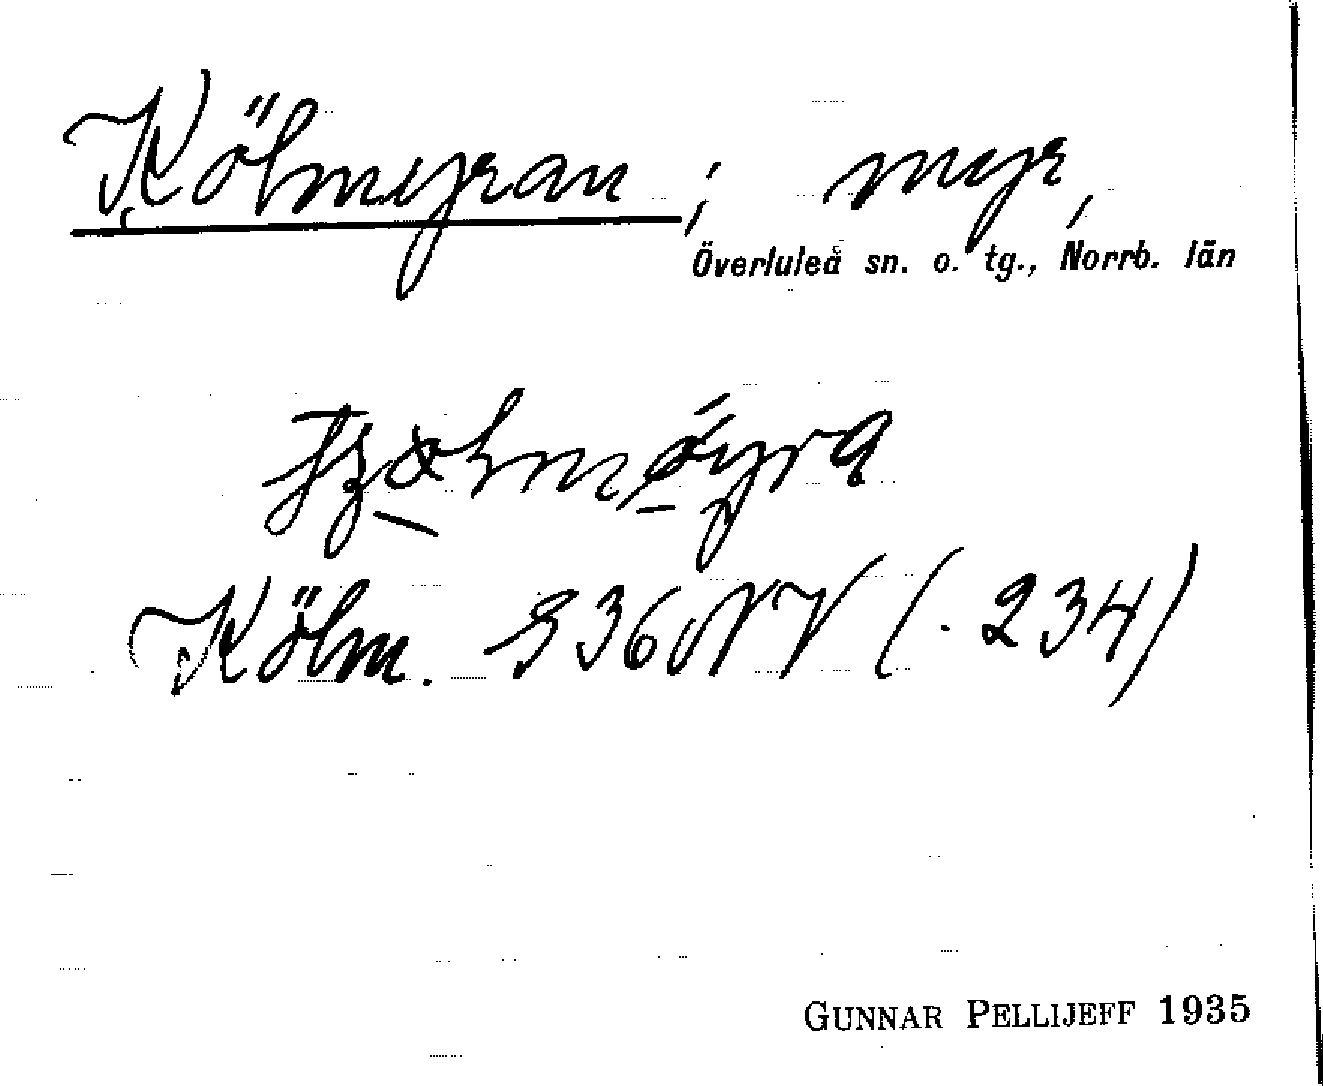 Kölmyran ; myr,
Överluleå sn. o. tg., Norrb. län
Kölm. 936NV (. 234)
GUNNAR PELLIJEFF 1935